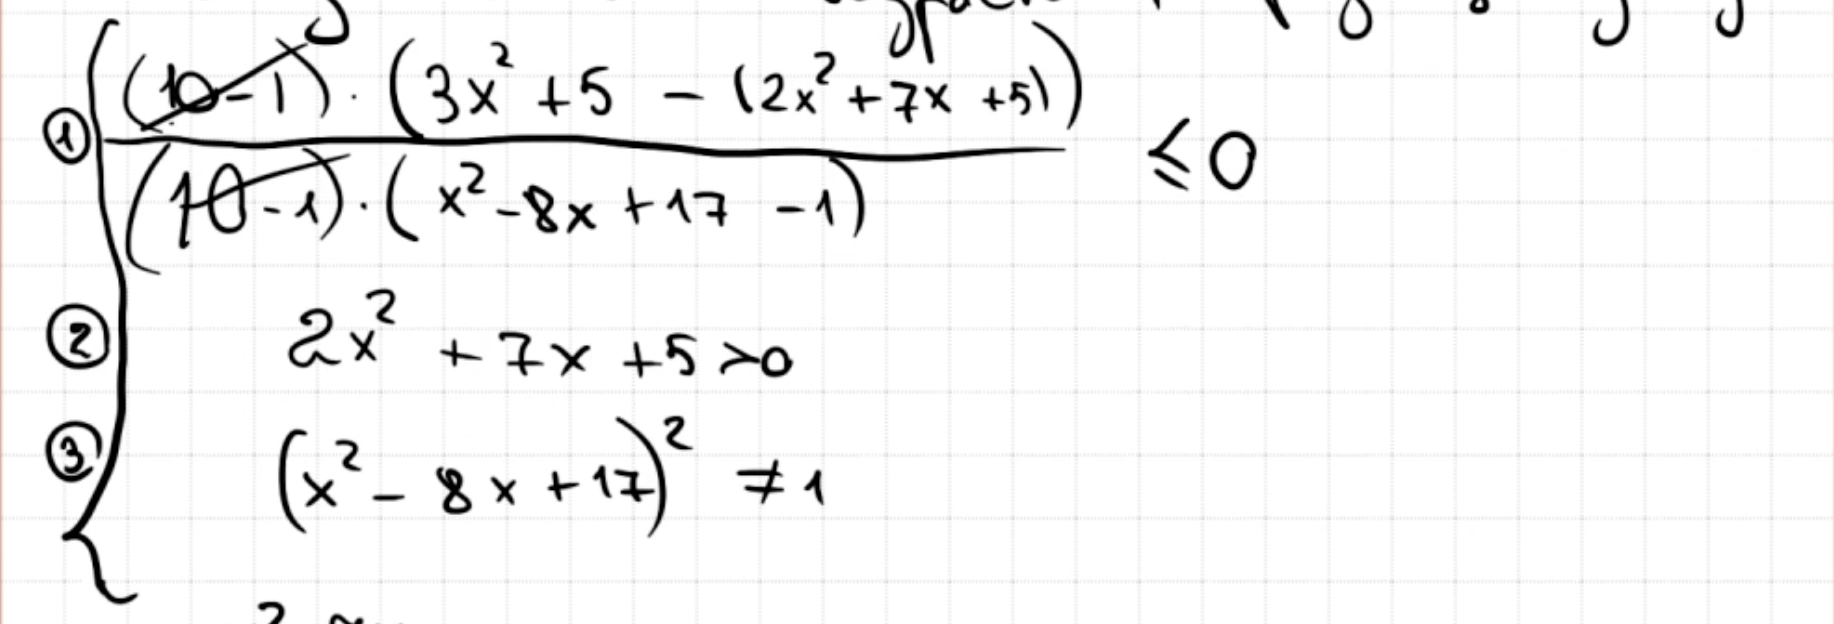 ① (10-1) · (3x² + 5 - (2x² + 7x + 5)) / (10-1) · (x² - 8x + 17 - 1) ≤ 0
② 2x² + 7x + 5 > 0
③ (x² - 8x + 17)² ≠ 1